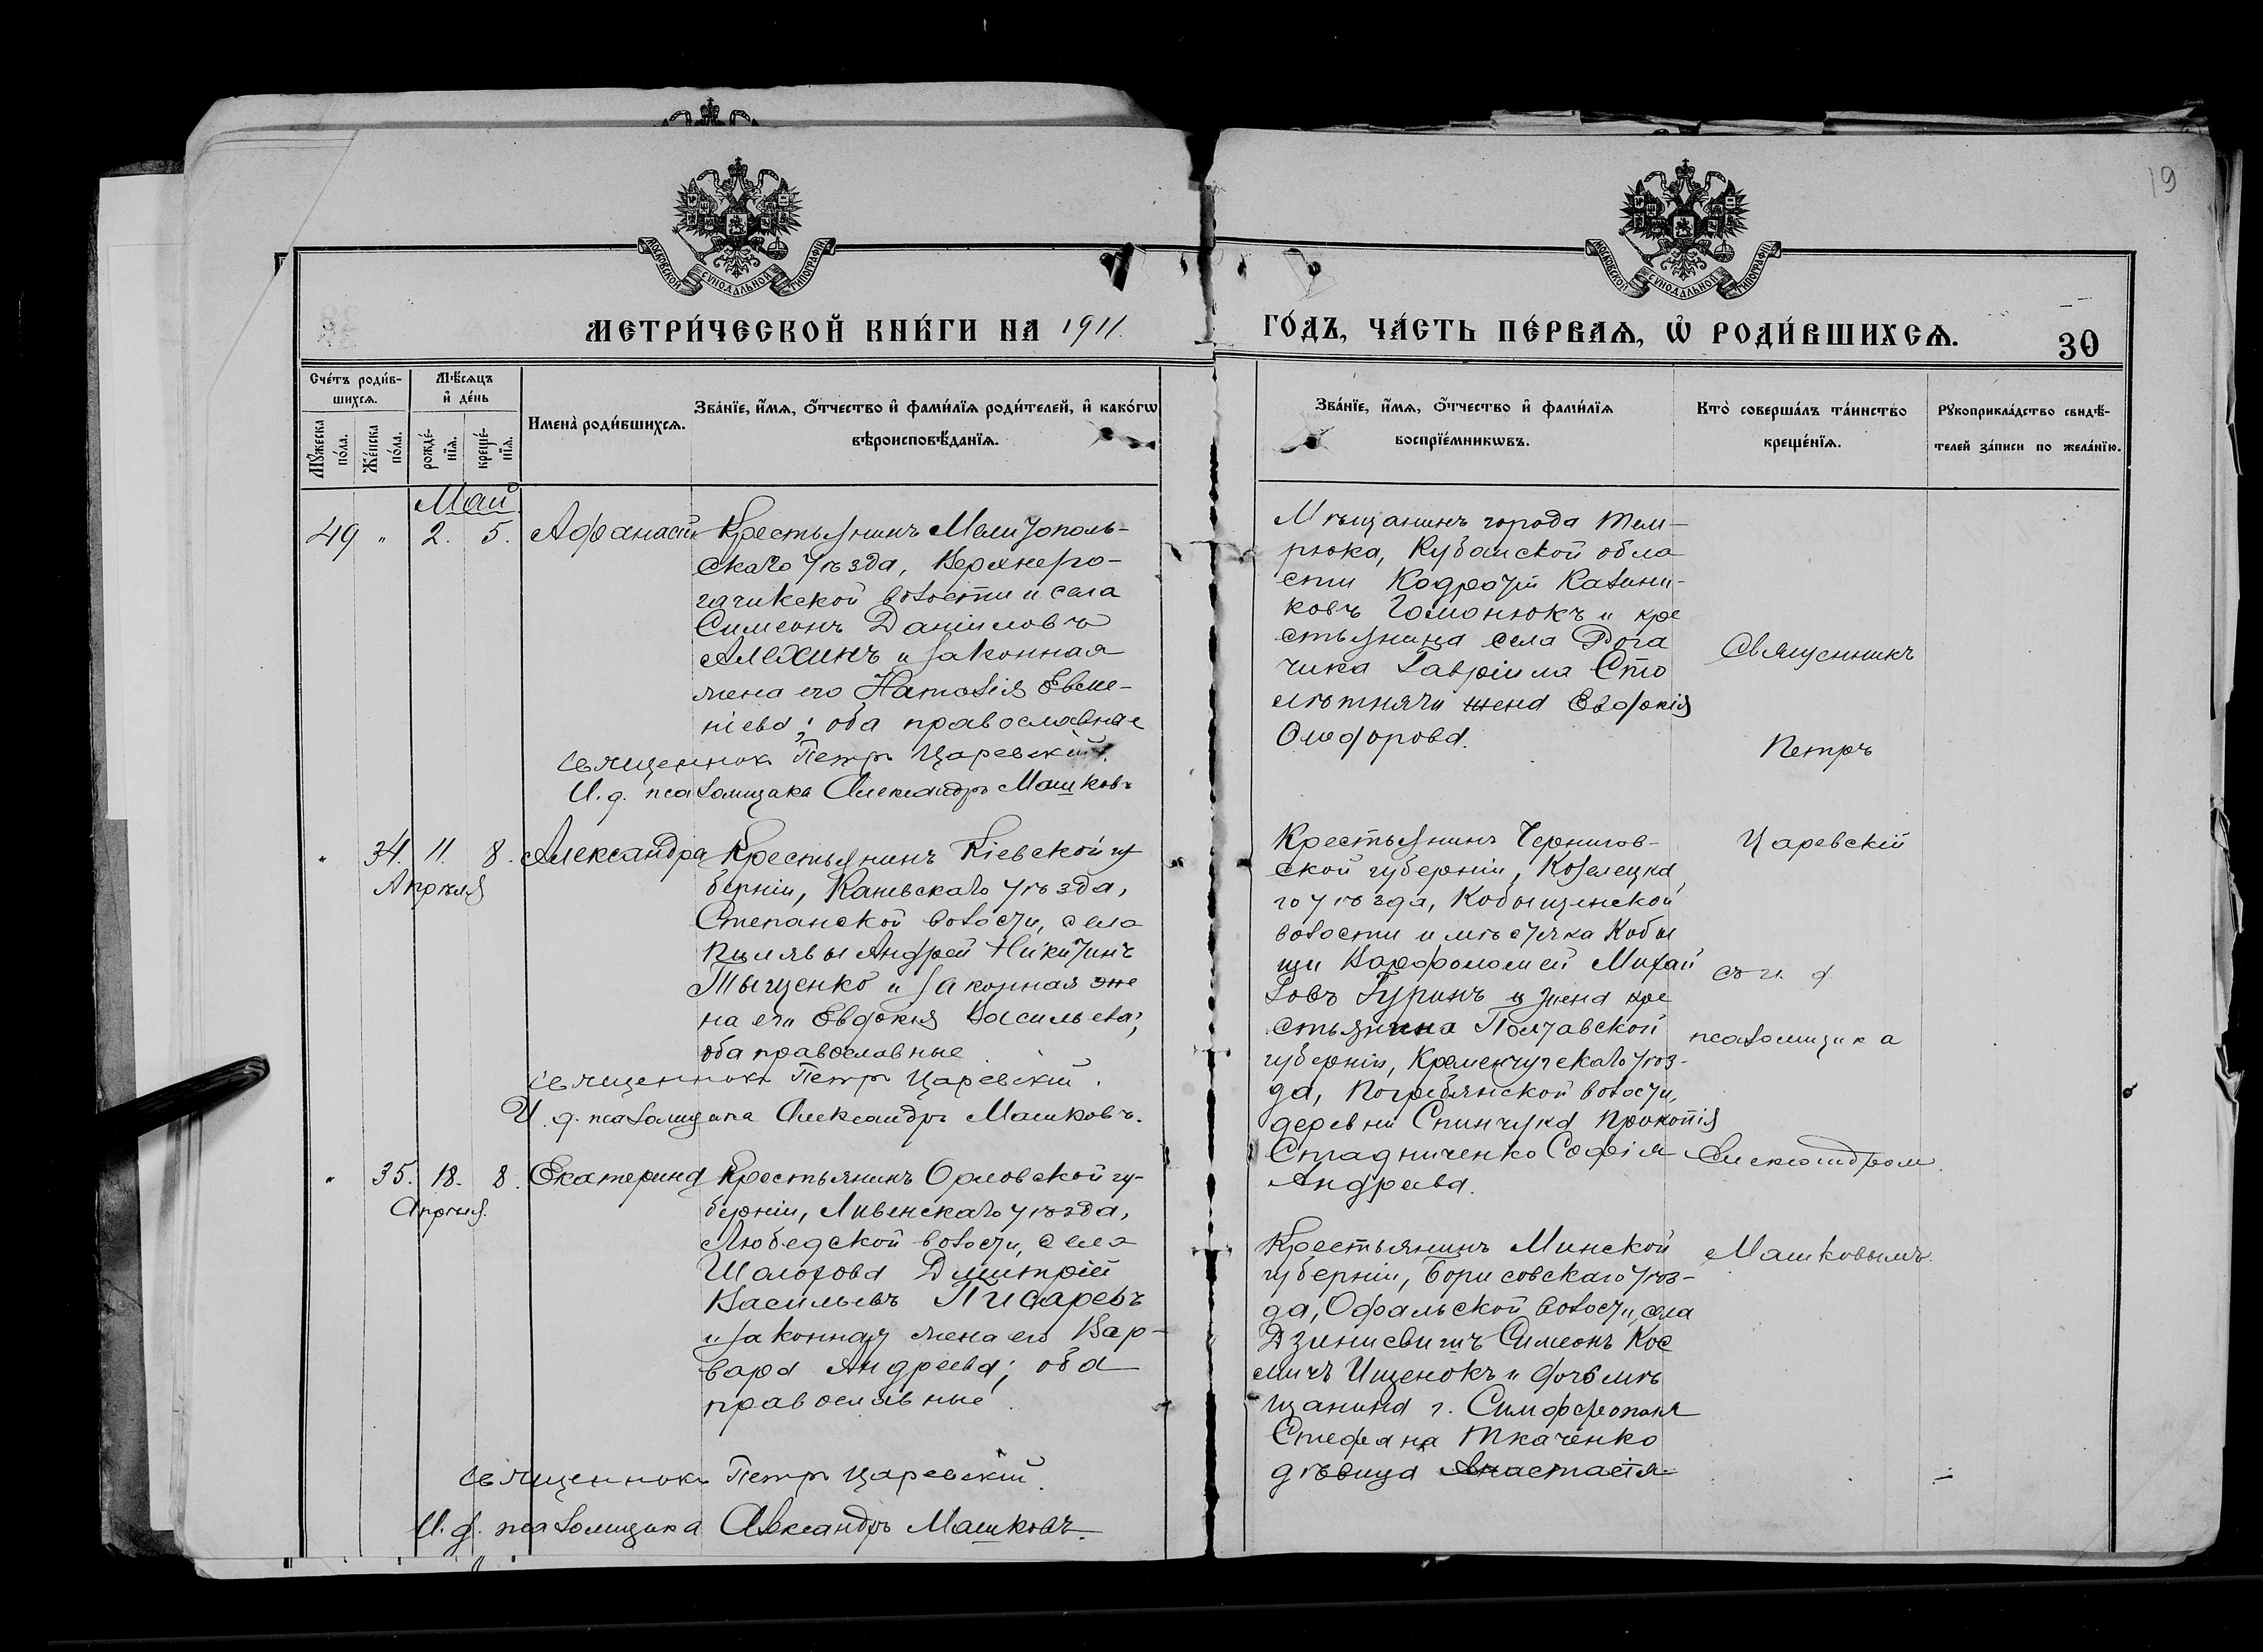 19
МОСКОВСКОЙ СУНОДАЛЬНОЙ ТИПОГРАФІИ
МОСКОВСКОЙ СУНОДАЛЬНОЙ ТИПОГРАФІИ
МЕТРИ́ЧЕСКОЙ КНИ́ГИ НА 1911.
ГО́ДЪ, ЧА́СТЬ ПЕ́РВАѦ, Ѡ҆ РОДИ́ВШИХСѦ.
30
Сче́тъ роди́в-
шихсѧ.
Мꙋ́жеска по́ла.
Же́нска по́ла.
Мѣ́сѧцъ
и҆ де́нь
рожде́-
нїѧ.
креще́-
нїѧ.
Имена̀ роди́вшихсѧ.
Зва́нїе, и҆́мѧ, ѻ҆́тчество и҆ фами́лїѧ роди́телей, и҆ како́гѡ
вѣроисповѣ́данїѧ.
Зва́нїе, и҆́мѧ, ѻ҆́тчество и҆ фами́лїѧ
воспрїе́мникѡвъ.
Кто̀ соверша́лъ та́инство
креще́нїѧ.
Рꙋкоприкла́дство свидѣ́-
телей за́писи по жела́нїю.
Май
49 " 2. 5. Афанасій
Крестьянинъ Мелитополь-
скаго уѣзда, Верхнеро-
гачикской волости и села
Симеонъ Даниловъ
Алехинъ и законная
жена его Наталія Евме-
ніева; оба православные
Священникъ Петръ Царевскій.
И. д. псаломщика Александръ Машковъ
Мѣщанинъ города Тем-
рюка, Кубанской обла
сти Кодратъ Калини-
ковъ Гомонюкъ и кре
стьянина села Рога
чика Гавріила Сто
лѣтняго жена Евдокія
Олефорова.
Священникъ
Петръ
Царевскій
съ и. д.
псаломщика
Александром
Машковымъ
" 34. 11. 8. Александра
Апрѣля
Крестьянинъ Кіевской гу
берніи, Каневскаго уѣзда,
Степанской волости, села
Пилявы Андрей Никитинъ
Тыщенко и законная же
на его Евдокія Васильева;
оба православные
Священникъ Петръ Царевскій.
И. д. псаломщика Александръ Машковъ.
Крестьянинъ Чернигов-
ской губерніи, Козелецка
го уѣзда, Кобыщенской
волости и мѣстечка Кобы
щи Варфоломей Михай
ловъ Гуринъ и жена кре
стьянина Полтавской
губерніи, Кременчугскаго уѣз-
да, Погребянской волости,
деревни Спинчука Прокопія
Стадниченко Софія
Андреева.
" 35. 18. 8. Екатерина
Апрѣля.
Крестьянинъ Орловской гу-
берніи, Ливенскаго уѣзда,
Любедской волости, села
Шалохова Димитрій
Васильевъ Писаревъ
и законная жена его Вар-
вара Андреева; оба
православные.
Священникъ Петръ Царевскій.
И. д. псаломщика Александръ Машковъ.
Крестьянинъ Минской
губерніи, Борисовскаго уѣз-
да, волости, села
Симеонъ Кос
мичъ Ищенокъ и дочь мѣ
щанина г. Симферополя
Стефана Ткаченко
дѣвица Анастасія